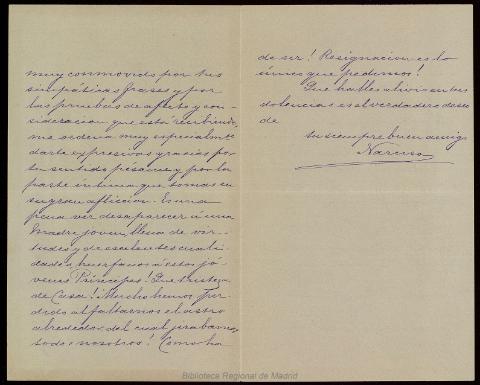 muy conmovido por tus
simpáticas frases y por
las pruebas de afecto y con-
sideracion que está recibiendo,
me ordena muy especialmte
darte expresivas gracias por
tu sentido pésame y por la
parte intima que tomas en
su gran afliccion. Es una
pena ver desaparecer á una
Madre joven, llena de vir-
tudes y de escelentes cuali-
dades huerfanos á estos jó-
venes Principes! Que tristeza
de Casa! Mucho hemos per-
dido al faltarnos el astro
alrededor del cual jirabamos
todos nosotros! Como ha
de ser! Resignacion es lo
único que pedimos!
Que halles alivio en tus
dolencias es el verdadero deseo
de
tu siempre buen amigo
Narciso
Biblioteca Regional de Madrid